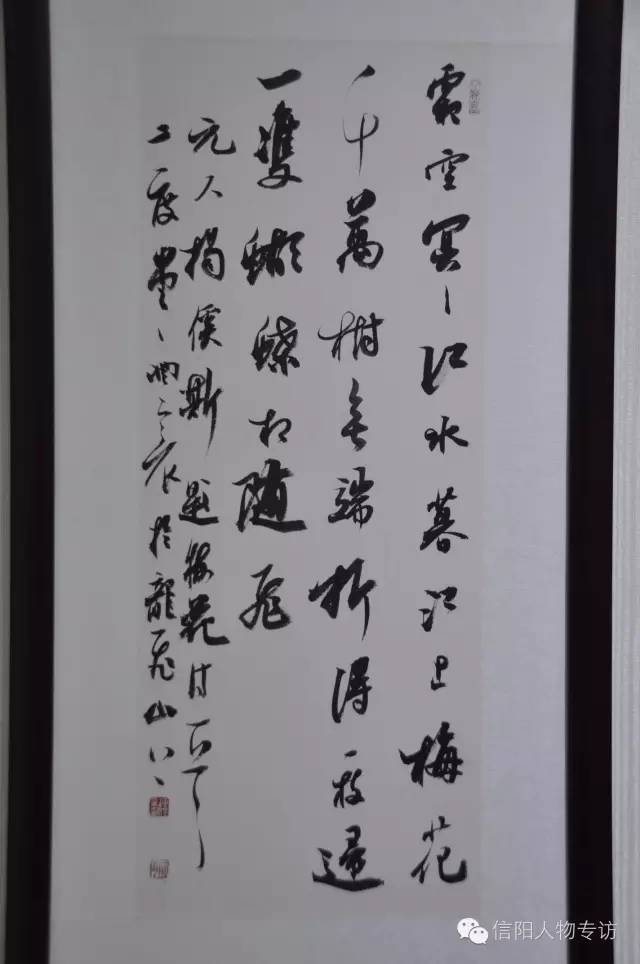 霜空冥〻江水暮江上梅花
千萬樹無端折得一枝歸
一雙蝴蝶相随飛
元人揭傒斯題梅花詩
於龍飛山
信阳人物专访